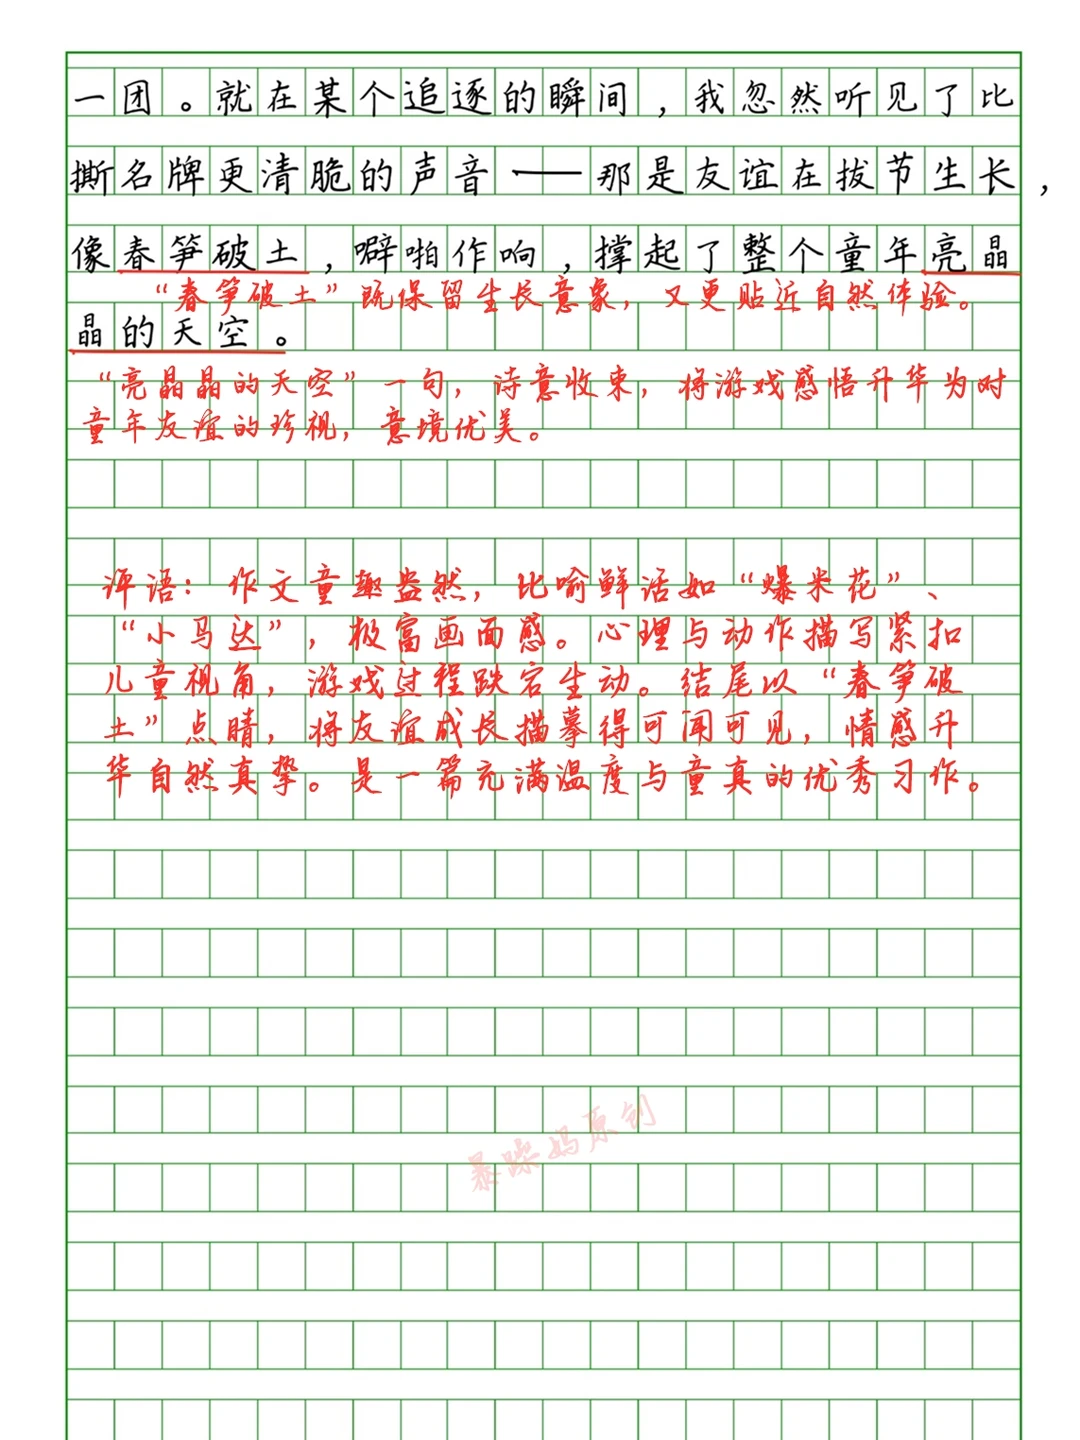 一团。就在某个追逐的瞬间，我忽然听见了比
撕名牌更清脆的声音——那是友谊在拔节生长，
像春笋破土，噼啪作响，撑起了整个童年亮晶
“春笋破土”既保留生长意象，又更贴近自然体验。
晶的天空。
“亮晶晶的天空”一句，诗意收束，将游戏感悟升华为对
童年友谊的珍视，意境优美。
评语：作文童趣盎然，比喻鲜活如“爆米花”、
“小马达”，极富画面感。心理与动作描写紧扣
儿童视角，游戏过程跌宕生动。结尾以“春笋破
土”点睛，将友谊成长描摹得可闻可见，情感升
华自然真挚。是一篇充满温度与童真的优秀习作。
暴躁妈原创